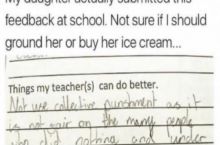 My daughter actually submitted this
feedback at school. Not sure if I should
ground her or buy her ice cream...
Things my teacher(s) can do better.
Not use collective punishment as it
is not fair on the many people
who did nothing and under